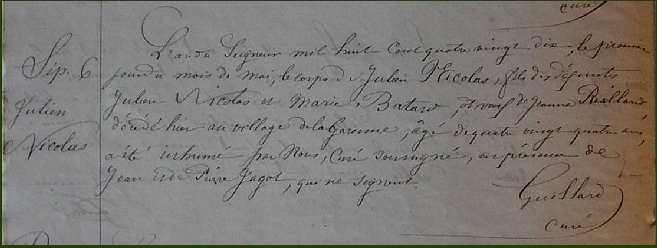 curé
Sép. 6
Julien
Nicolas
L'an du Seigneur mil huit cent quatre vingt dix, le premier
jour du mois de Mai, le corps de Julien Nicolas, fils des défunts
Julien Nicolas et Marie Batard, et veuf de Jeanne Rialland,
décédé hier au village de la Garenne, âgé de quatre vingt quatre ans,
a été inhumé par Nous, Curé soussigné, en présence de
Jean et de Pierre Jagot, qui ne signent.
Guillard
curé